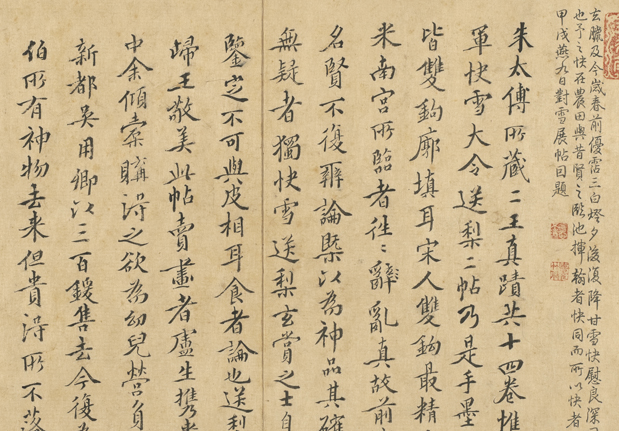 玄臘及今歲春前優霑三白燈夕後復降甘雪快慰良深
也予之快在農田與昔賢之臨池揮翰者快同而所以快者
甲戌燕九日對雪展帖因題
朱太傅所藏二王真蹟共十四卷惟
軍快雪大令送梨二帖乃是手墨
皆雙鉤廓填耳宋人雙鉤最精
米南宮所臨者往〻辭亂真故前
名賢不復辨論槩以為神品其確
無疑者獨快雪送梨玄賞之士自
鑒定不可與皮相耳食者論也送梨
歸王敬美此帖賣畫者盧生攜來
中余傾橐購得之欲為幼兒營負
新都吳用卿以三百鍰售去今復為
伯所有神物去來但貴得所不落